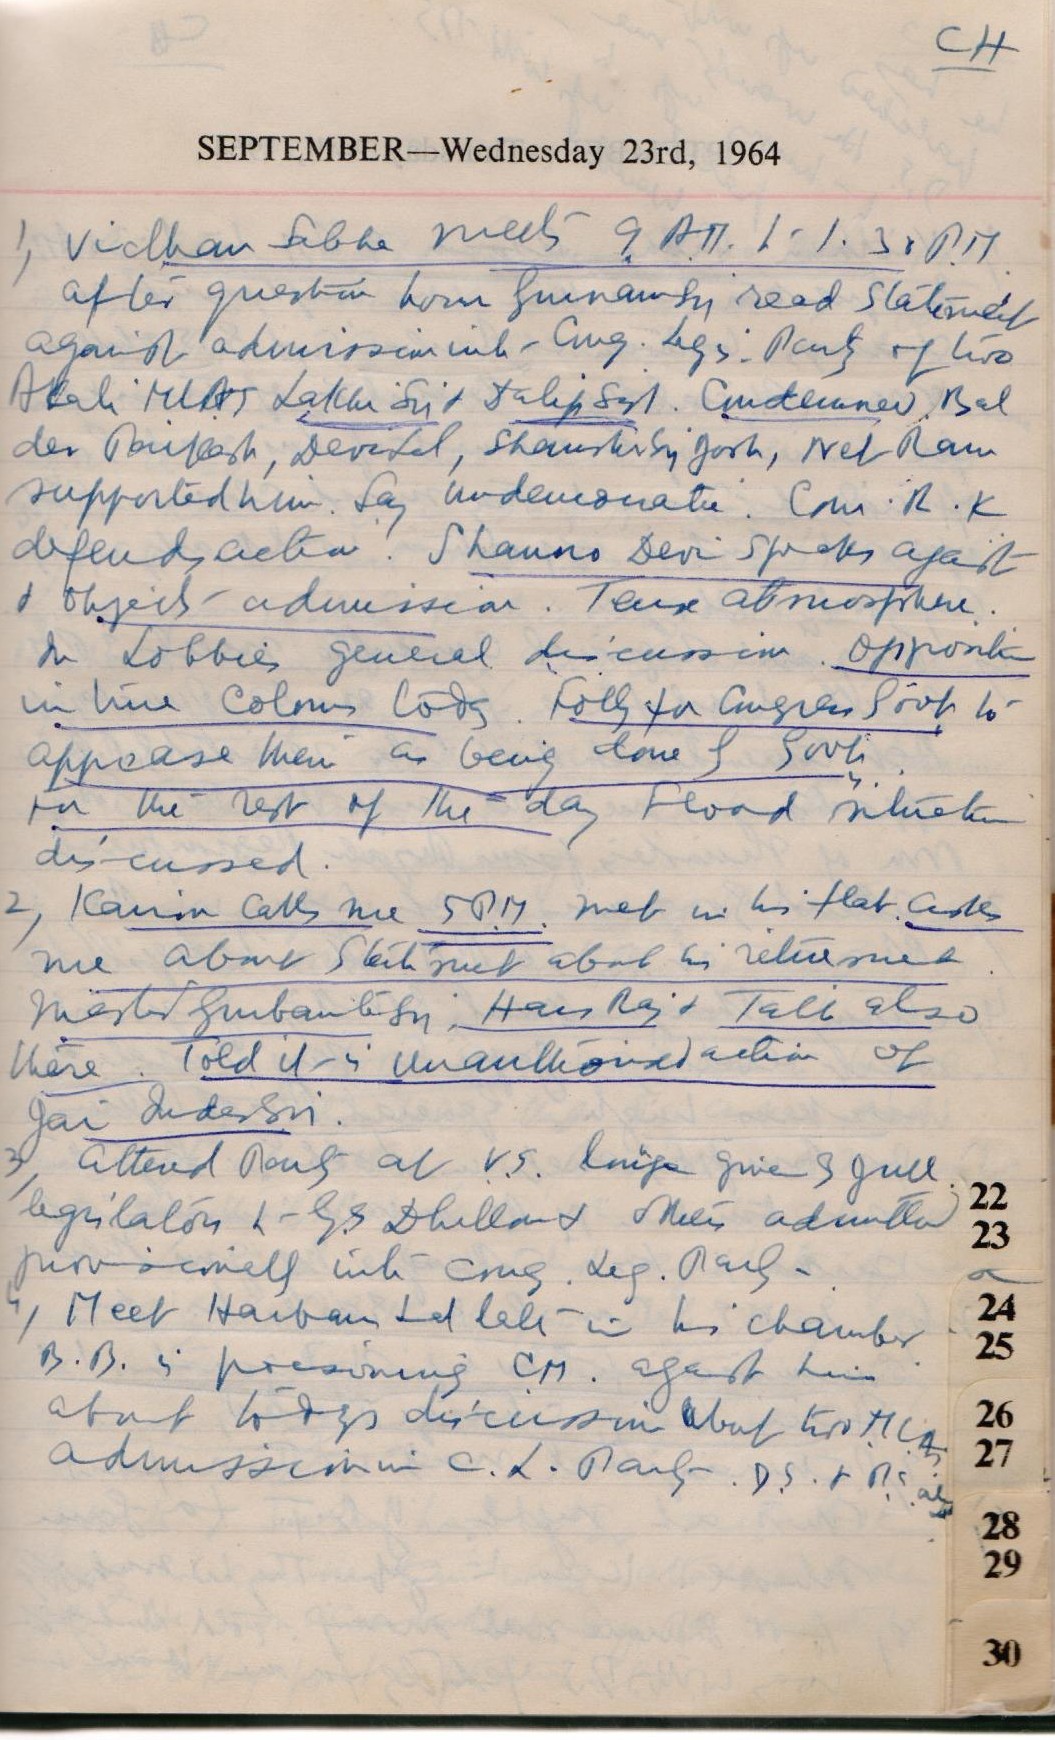 CH
SEPTEMBER—Wednesday 23rd, 1964
1, Vidhan Sabha meets 9 A.M. to 1.30 P.M.
after question hour Gurnam Sgh read Statement
against admission into Cong. Legis. Party of two
Akali MLAs Lakhi Sgh & Dalip Sgh. Condemned Bal
dev Parkash, Devi Lal, Shamsher Sgh Josh, Net Ram
supported him. Say undemocratic. Com. R. K
defends action. Shanno Devi Speaks against
& objects admission. Tense atmosphere.
In Lobbies general discussion. Opposition
in true Colours today. Folly for Congress Govt to
appease them as being done by Govt.
For the rest of the day Flood situation
discussed.
2, Kairon Calls me 5 P.M. met in his flat. asks
me about Statement about his retirement.
Master Gurbanta Sgh, Hans Raj & Talib also
there. Told it is unauthorised action of
Jai Inder Sgh.
3, attend Party at V.S. lounge given by Jull
legislators to G.S. Dhillon & others admitted
provisionally into Cong. Leg. Party.
4, Meet Harbans Lal late in his chamber.
B.B. is poisoning CM. against him
about todays discussion about two MLAs
admission in C.L. Party. D.S. & P.S.
22
23
24
25
26
27
28
29
30